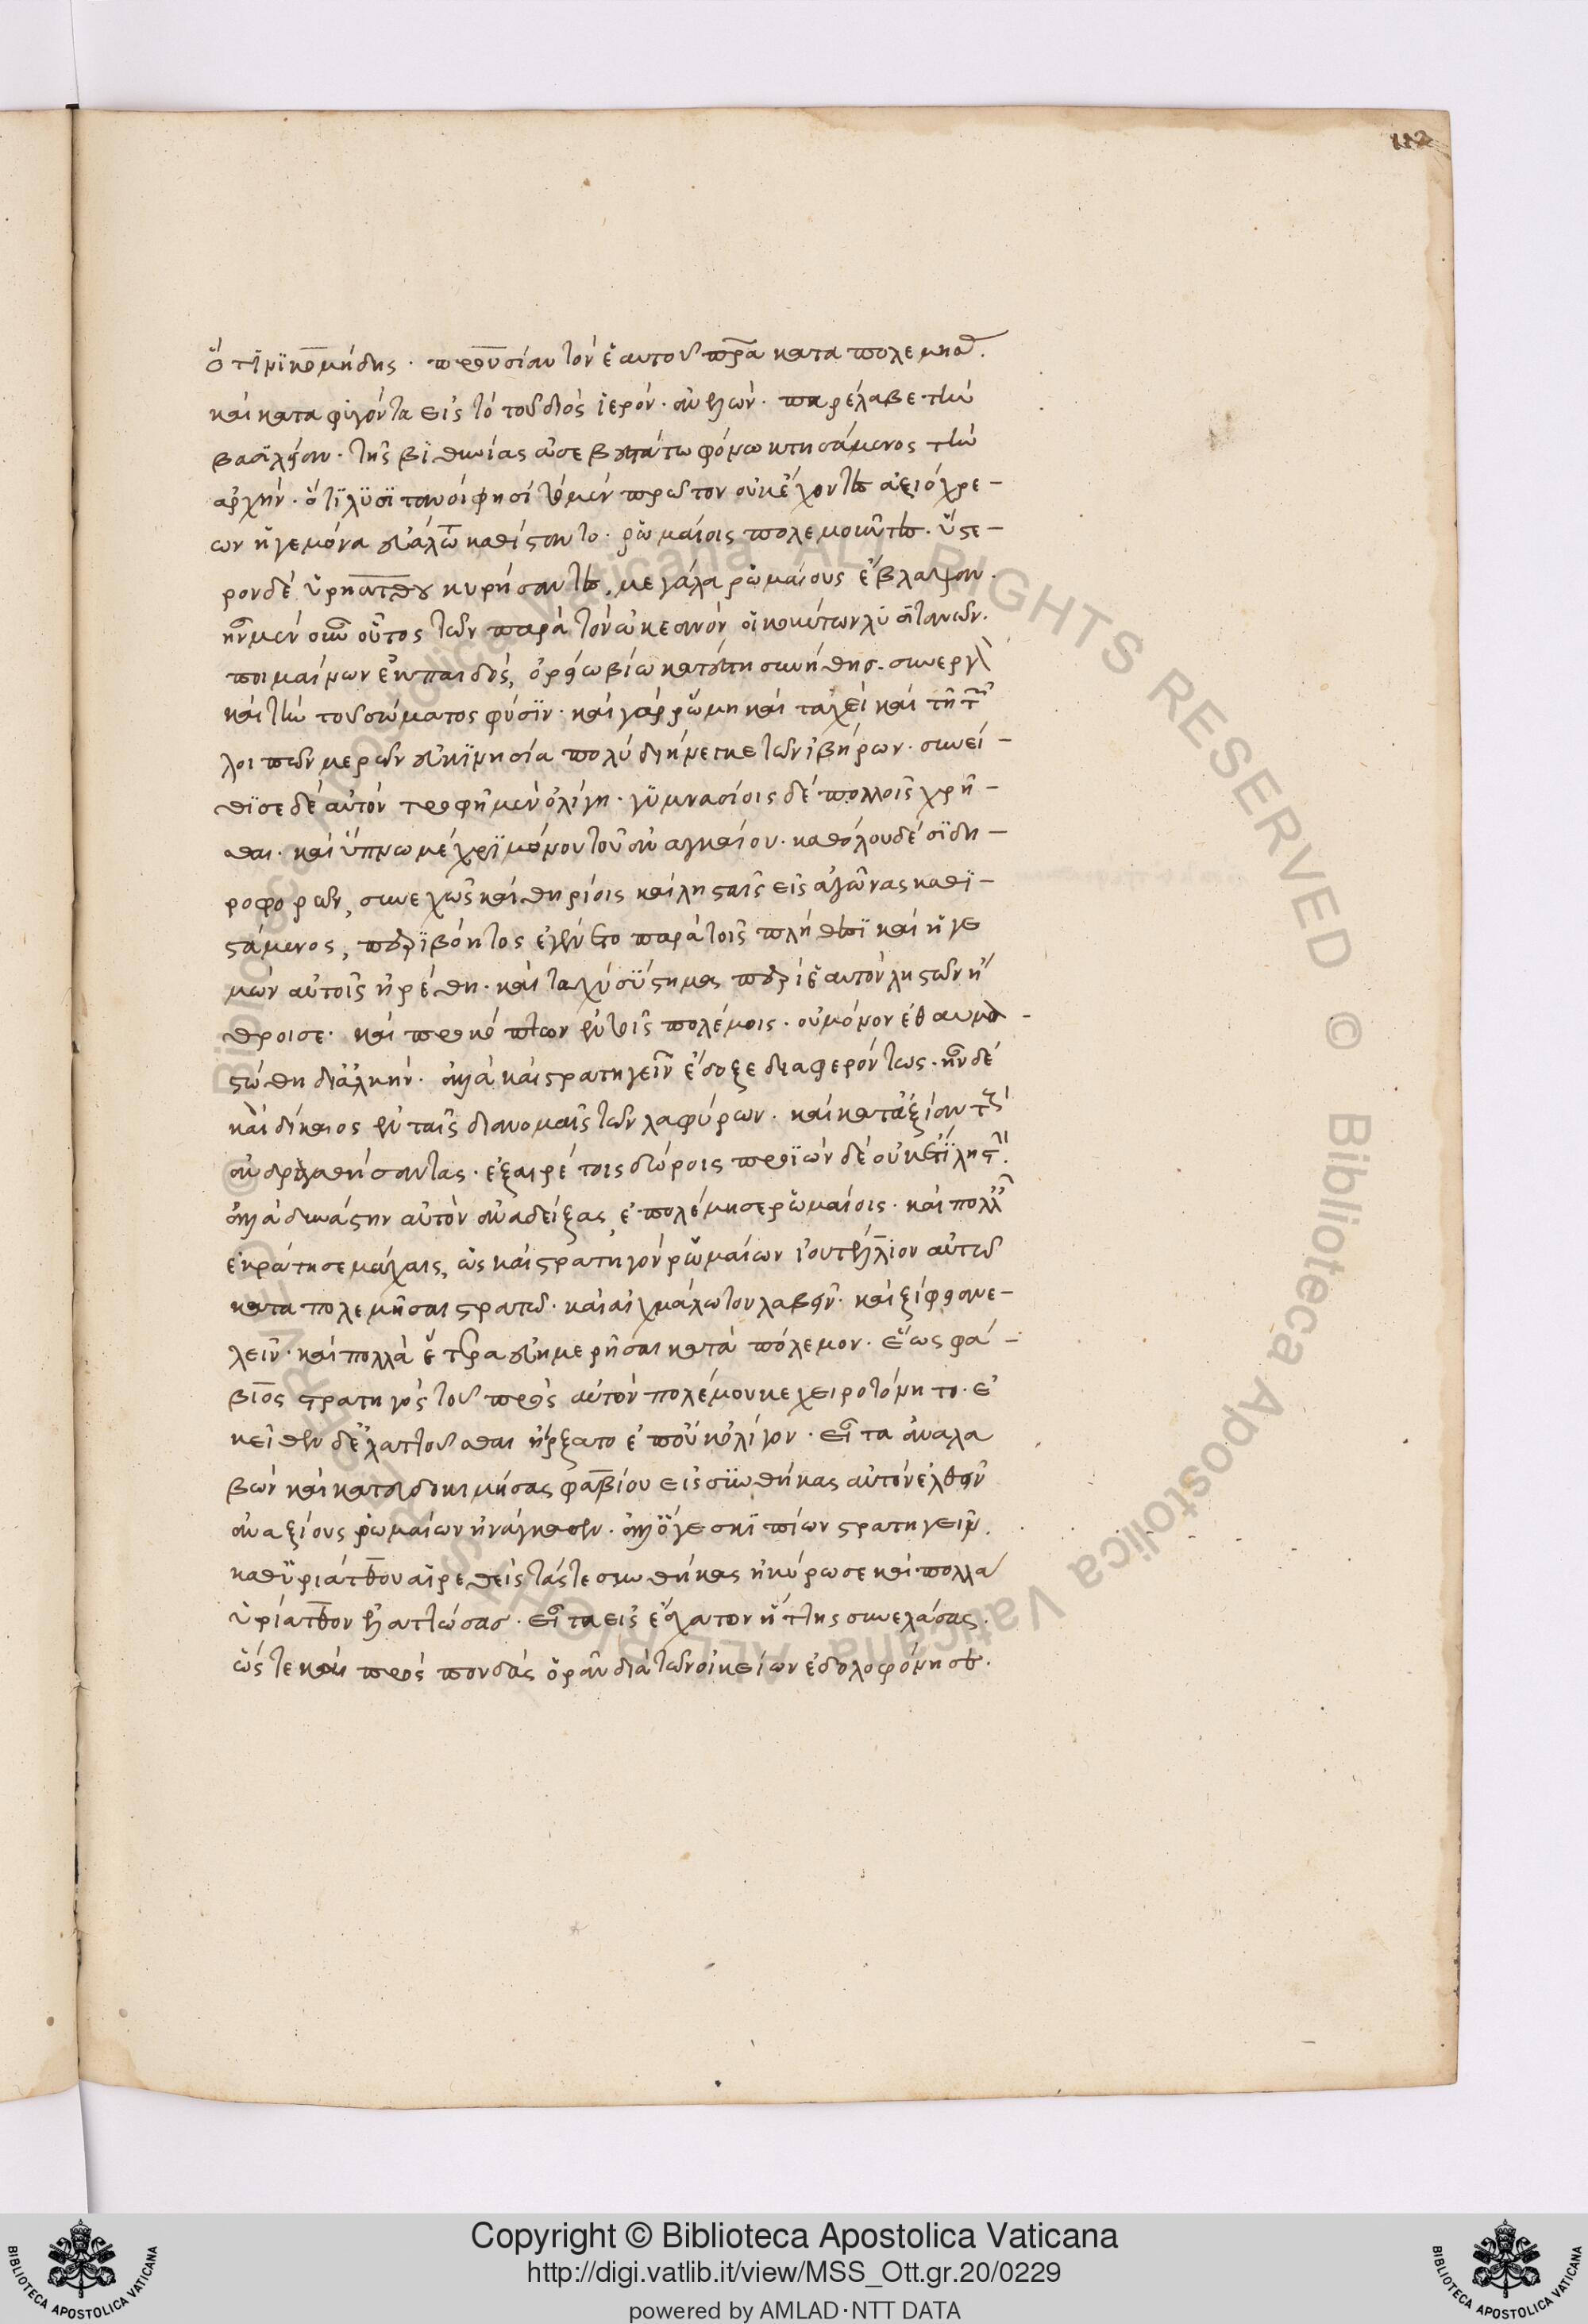 112
ὅτι νικομήδης · προυσίαν τὸν ἑαυτοῦ πρα καταπολεμήσας ·
καὶ καταφυγόντα εἰς τὸ τοῦ διὸς ἱερόν · ἀνελών · παρέλαβε τὴν
βασιλείαν · τῆς βιθυνίας ἀσεβεστάτω φόνω κτησάμενος τὴν
ἀρχήν · ὅτι λυσιτανοί φησι τὸ μὲν πρῶτον οὐκ ἔχοντες ἀξιόχρε-
ων ἡγεμόνα εὐάλωτοι καθίσταντο · ῥωμαίοις πολεμοῦντες · ὕστε-
ρον δὲ ὑριάτθου κυρήσαντες, μεγάλα ῥωμαίους ἔβλαψαν ·
ἦν μὲν οὖν οὗτος τῶν παρὰ τὸν ὠκεανὸν οἰκούντων λυσιτανῶν ·
ποιμαίνων ἐκ παιδός, ὀρείω βίω κατέστη συνήθης · συνεργὸν
καὶ τὴν τοῦ σώματος φύσιν · καὶ γὰρ ῥώμη καὶ τάχει καὶ τῆ τῶν
λοιπῶν μερῶν εὐκινησία πολὺ διήνεγκε τῶν ἰβήρων · συνεί-
θισε δὲ αὐτὸν τροφῆ μὲν ὀλίγη · γυμνασίοις δὲ πολλοῖς χρῆ-
σθαι · καὶ ὕπνω μέχρι μόνου τοῦ ἀναγκαίου · καθόλου δὲ σιδη-
ροφορῶν, συνεχῶς καὶ θηρίοις καὶ λησταῖς εἰς ἀγῶνας καθι-
στάμενος, περιβόητος ἐγένετο παρὰ τοῖς πλήθεσι καὶ ἡγε
μὼν αὐτοῖς ἡρέθη · καὶ ταχὺ σύστημα περὶ ἑαυτὸν ληστῶν ἤ
θροισε · καὶ προκόπτων ἐν τοῖς πολέμοις · οὐ μόνον ἐθαυμα-
στώθη δι ἀλκήν · ἀλλὰ καὶ στρατηγεῖν ἔδοξε διαφερόντως · ἦν δὲ
καὶ δίκαιος ἐν ταῖς διανομαῖς τῶν λαφύρων · καὶ κατ ἀξίαν τοὺς
ἀνδραγαθήσαντας · ἐξαιρέτοις δώροις προϊὼν δὲ οὐκέτι ληστὴν ·
ἀλλὰ δυνάστην αὐτὸν ἀναδείξας, ἐπολέμησε ῥωμαίοις · καὶ πολλαῖς
ἐκράτησε μάχαις, ὡς καὶ στρατηγὸν ῥωμαίων ἰουτέλλιον αὐτῶ
καταπολεμῆσαι στρατῶ · καὶ αἰχμάλωτον λαβεῖν · καὶ ξίφει ἀνε-
λεῖν · καὶ πολλὰ ἕτερα εὐημερῆσαι κατὰ πόλεμον · ἕως φά-
βιος στρατηγὸς τοῦ πρὸς αὐτὸν πολέμου κεχειροτόνητο · ἐ
κεῖθεν δὲ ἐλαττοῦσθαι ἤρξατο ἐπ οὐκ ὀλίγον · εἶτα ἀναλα
βὼν καὶ κατευδοκιμήσας φαβίου εἰς συνθήκας αὐτὸν ἐλθεῖν
ἀναξίους ῥωμαίων ἠνάγκασεν · ἀλλ ὅ γε σκιπίων στρατηγεῖν ·
καθ ὑριάτθου αἱρεθεὶς τάς τε συνθήκας ἠκύρωσε καὶ πολλὰ
ὑρίατθον ἐλαττώσας · εἶτα εἰς ἔσχατον ἥττης συνελάσας ·
ὥς τε καὶ πρὸς πονδὰς ὁρᾶν διὰ τῶν οἰκείων ἐδολοφόνησε ·
Copyright © Biblioteca Apostolica Vaticana
http://digi.vatlib.it/view/MSS_Ott.gr.20/0229
powered by AMLAD·NTT DATA